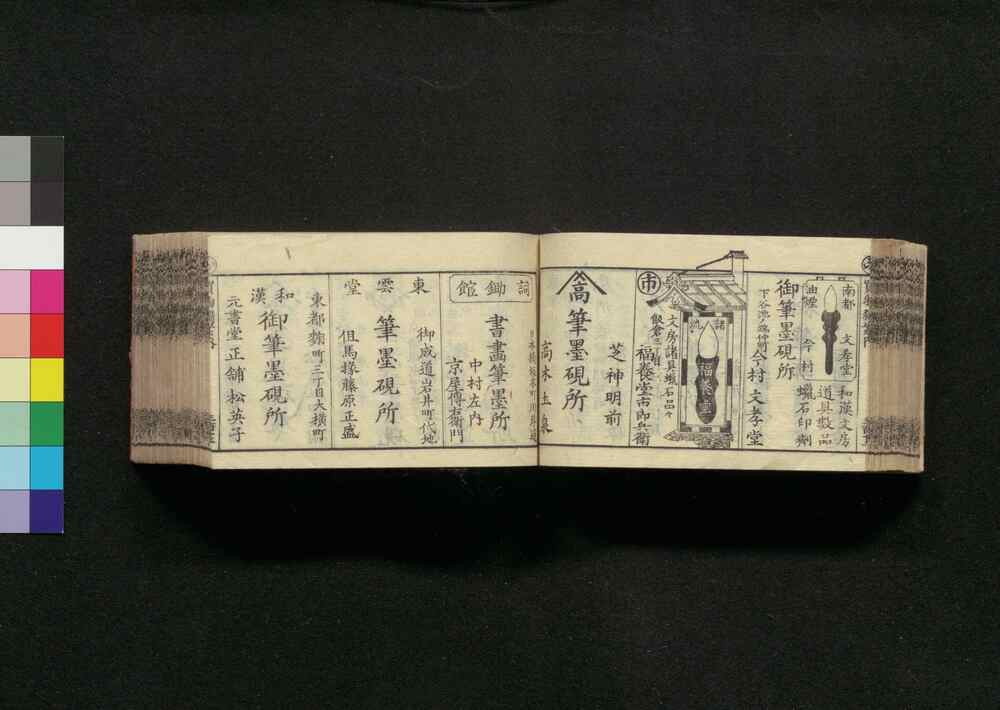 南都
文孝堂
油煙
今村
和漢文房
道具数品
蠟石印劑
御筆墨硯所
今村文孝堂
諸流
福養堂
市
文房諸具蠟石品々
福養堂市郎兵衛
芝神明前
高
筆墨硯所
詞鋤館
書畫筆墨所
中村左内
京屋傳右衛門
東雲堂
御成道岩井町代地
筆墨硯所
但馬掾藤原正盛
東都麹町三丁目大横町
和漢
御筆墨硯所
元書堂正舗松英子